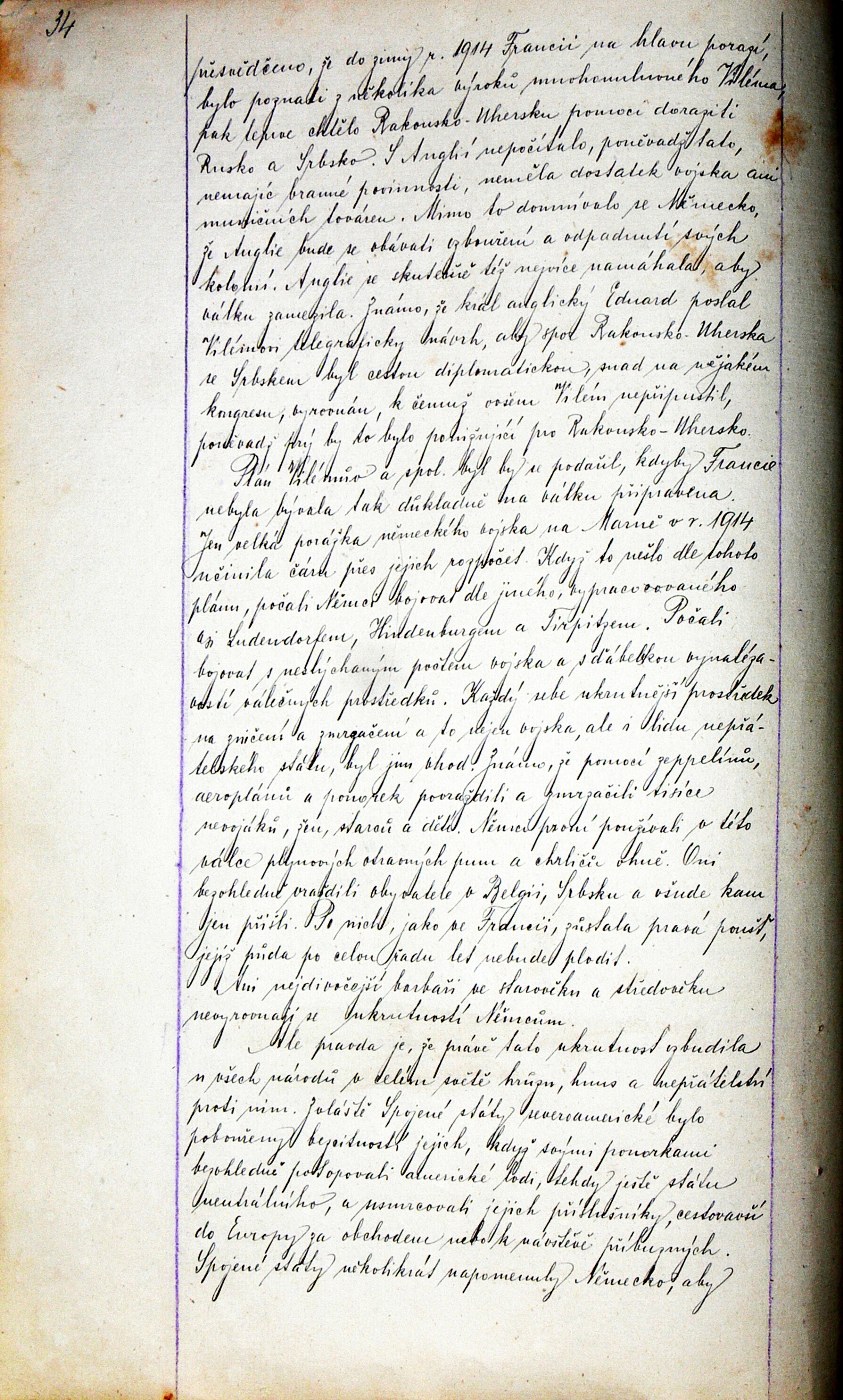 34
přesvědčeno, že do zimy r. 1914 Francii na hlavu porazí,
bylo poznati z několika výroků mnohomluvného Viléma,
pak teprve chtělo Rakousko-Uhersku pomoci doraziti
Rusko a Srbsko. S Anglií nepočítalo, poněvadž tato,
nemajíc branné povinnosti, neměla dostatek vojska ani
muničních továren. Mimo to domnívalo se Německo,
že Anglie bude se obávati vzbouření a odpadnutí svých
kolonií. Anglie se skutečně též nejvíce namáhala, aby
válku zamezila. Známo, že král anglický Eduard poslal
Vilémovi telegraficky návrh, aby spor Rakousko-Uherska
se Srbskem byl cestou diplomatickou, snad na nějakém
kongresu, vyrovnán, k čemuž ovšem Vilém nepřipustil,
poněvadž prý by to bylo ponižující pro Rakousko-Uhersko.
Plán Vilémův a spol. byl by se podařil, kdyby Francie
nebyla bývala tak důkladně na válku připravena.
Jen velká porážka německého vojska na Marně v r. 1914
učinila čáru přes jejich rozpočet. Když to nešlo dle tohoto
plánu, počali Němci bojovat dle jiného, vypracovovaného
asi Ludendorfem, Hindenburgem a Tirpitzem. Počali
bojovat s neslýchaným počtem vojska a s ďábelskou vynaléza-
vostí válečných prostředků. Každý sebe ukrutnější prostředek
na zničení a zmrzačení a to nejen vojska, ale i lidu nepřá-
telského státu, byl jim vhod. Známo, že pomocí zeppelínů,
aeroplánů a ponorek povraždili a zmrzačili tisíce
nevojáků, žen, starců a dětí. Němci první používali v této
válce plynových otravných pum a chrličů ohně. Oni
bezohledně vraždili obyvatele v Belgii, Srbsku a všude kam
jen přišli. Po nich, jako ve Francii, zůstala pravá poušť,
jejíž půda po celou řadu let nebude plodit.
Ani nejdivočejší barbaři ve starověku a středověku
nevyrovnají se ukrutností Němcům.
Ale pravda je, že právě tato ukrutnost vzbudila
u všech národů v celém světě hrůzu, hnus a nepřátelství
proti nim. Zvláště Spojené státy severoamerické bylo
pobouřeny bezcitností jejich, když svými ponorkami
bezohledně potopovali americké lodi, tehdy ještě státu
neutrálního, a usmrcovali jejich příslušníky, cestovavší
do Evropy za obchodem nebo k návštěvě příbuzných.
Spojené státy několikrát napomenuly Německo, aby